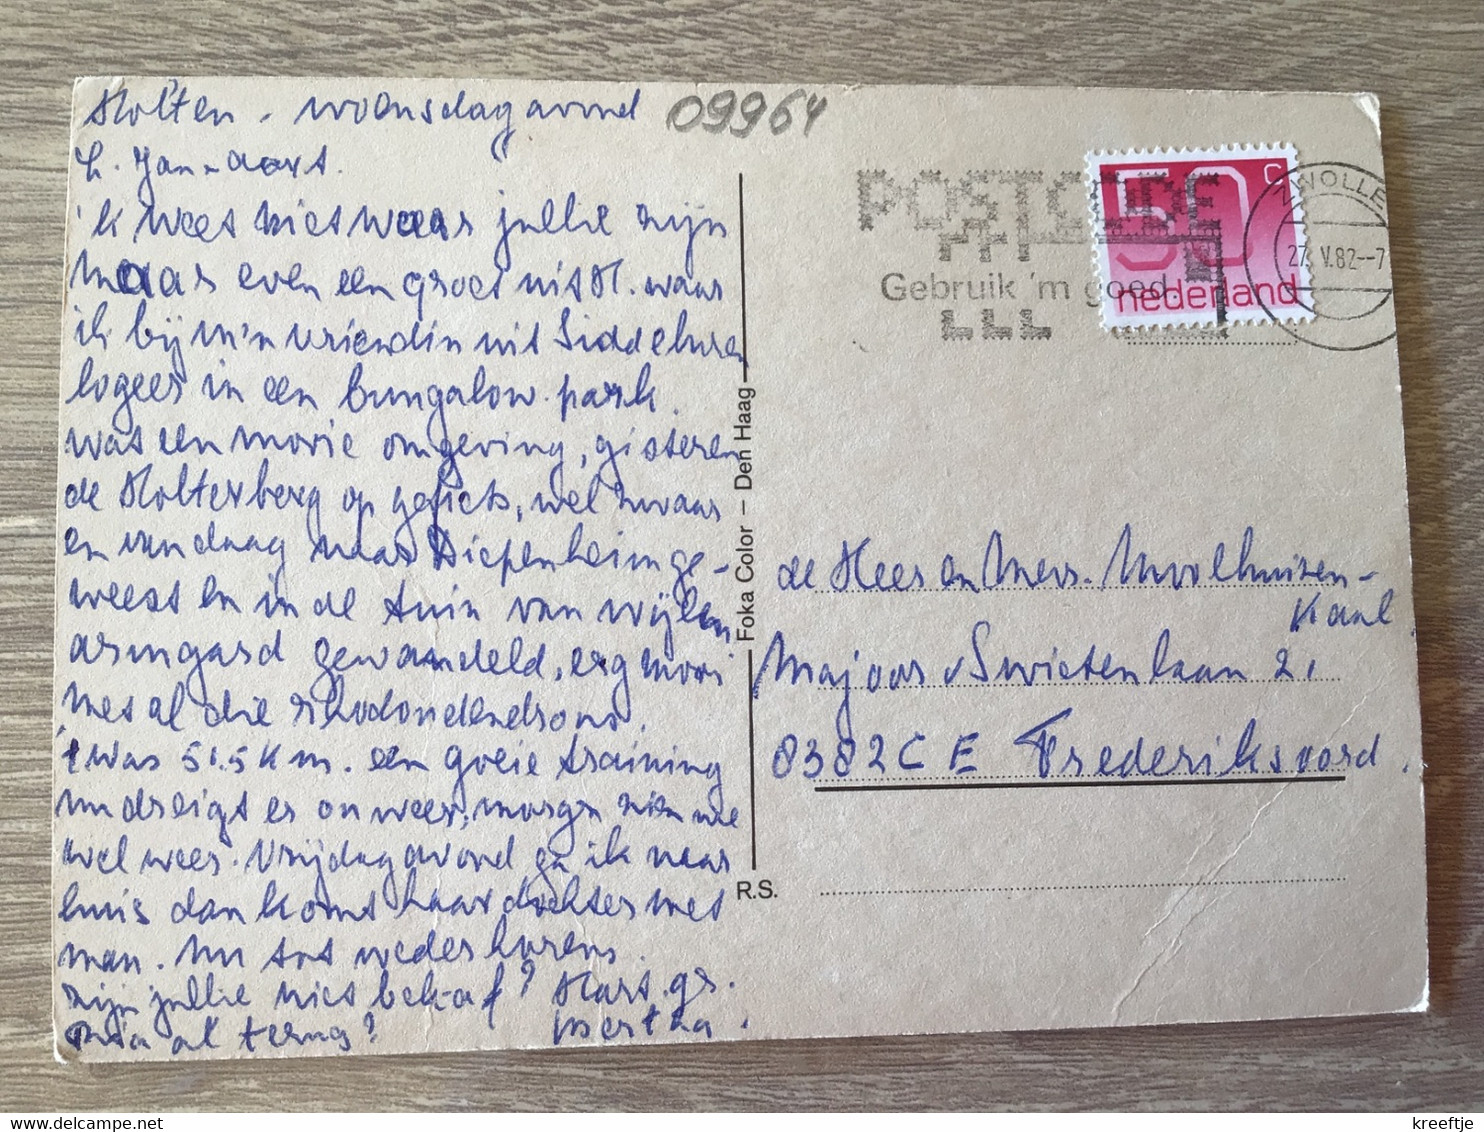 Holten. woensdagavond
09964
L. Jan-aart.
'k weet niet waar jullie zijn
maar even een groet uit H. waar
ik bij m'n vriendin uit Siddeburen
logeer in een bungalow-park.
wat een mooie omgeving, gisteren
de Holterberg op gefietst, wel zwaar
en vandaag naar Diepenheim ge-
weest en in de tuin van wijlen
armgard gewandeld, erg mooi
met al die rhododendrons.
't was 51.5 km. een goeie training
nu dreigt er onweer, morgen zien we
wel weer. Vrijdagavond ga ik naar
huis dan komt haar dochter met
man. Nu tot wederhorens.
zijn jullie niet bek-af? Hart. gr.
al terug? Bertha.
POSTCODE
Gebruik 'm goed.
50 c
nederland
ZWOLLE
27.V.82--7
Foka Color – Den Haag
R.S.
de Heer en Mevr. Molhuizen-
Kaal
Majoor v Swietenlaan 21
8382 CE Frederiksoord.
kreeftje